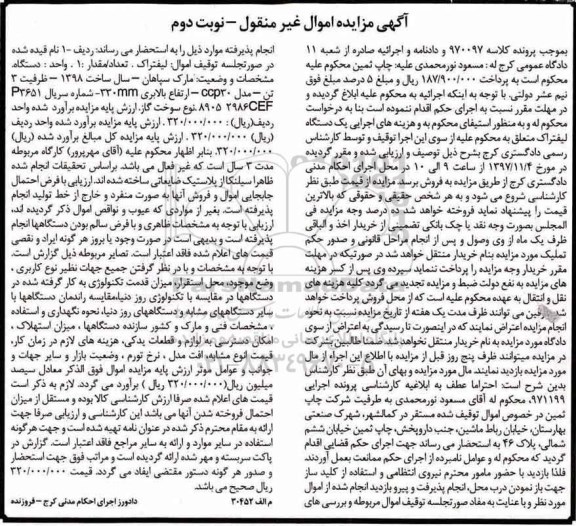 آگهی مزایده اموال غیر منقول – نوبت دوم
بموجب پرونده کلاسه ۹۷۰۰۹۷ و دادنامه و اجرائیه صادره از شعبه ۱۱
دادگاه عمومی کرج له : مسعود نورمحمدی علیه: چاپ ثمین محکوم علیه
محکوم است به پرداخت ۱۸۷/۹۰۰/۰۰۰ ریال و مبلغ ۵ درصد مبلغ فوق
نیم عشر دولتی. با توجه به اینکه اجرائیه به محکوم علیه ابلاغ گردیده و
در مهلت مقرر نسبت به اجرای حکم اقدام ننموده است بنا به درخواست
محکوم له و به منظور استیفای محکوم به و هزینه های اجرایی یک دستگاه
لیفتراک متعلق به محکوم علیه از سوی این اجرا توقیف و توسط کارشناس
رسمی دادگستری کرج بشرح ذیل توصیف و ارزیابی شده و مقرر گردیده
در مورخ ۱۳۹۷/۱۱/۴ از ساعت ۹ الی ۱۰ در محل اجرای احکام مدنی
دادگستری کرج از طریق مزایده به فروش برسد. مزایده از قیمت طبق نظر
کارشناسی شروع می شود و به هر شخص حقیقی و حقوقی که بالاترین
قیمت را پیشنهاد نماید فروخته خواهد شد. ده درصد وجه مزایده فی
المجلس بصورت وجه نقد یا چک بانکی تضمینی از خریدار اخذ و الباقی
ظرف یک ماه از وی وصول و پس از انجام مراحل قانونی و صدور حکم
تملیک مورد مزایده بنام خریدار منتقل خواهد شد در صورتیکه در مهلت
مقرر خریدار وجه مزایده را پرداخت ننماید سپرده وی پس از کسر هزینه
های مزایده به نفع دولت ضبط و مزایده تجدید می گردد کلیه هزینه های
نقل و انتقال به عهده محکوم علیه است که از محل فروش پرداخت خواهد
شد. طرفین می توانند ظرف مدت یک هفته از تاریخ مزایده نسبت به نحوه
انجام مزایده اعتراض نمایند که در اینصورت تا رسیدگی به اعتراض از سوی
دادگاه مورد مزایده به نام خریدار منتقل نخواهد شد ضمنا طالبین شرکت
در مزایده میتوانند ظرف پنج روز قبل از مزایده با اطلاع این اجراء از مال
مورد مزایده بازدید نمایند. مال مورد مزایده و بهای آن طبق نظر کارشناس
بدین شرح است: احتراما عطف به ابلاغیه کارشناسی پرونده اجرایی
۹۷۱۱۹۹، محکوم له آقای مسعود نورمحمدی به طرفیت شرکت چاپ
ثمین در خصوص اموال توقیف شده مستقر در کمالشهر، شهرک صنعتی
بهارستان، خیابان رباط ماشین، جنب داروپخش، چاپ ثمین خیابان ششم
شمالی، پلاک ۴۶ به استحضار می رساند جهت اجرای حکم قضایی اقدام
گردید که محکوم له و عوامل نامبرده از اجرای حکم ممانعت بعمل آوردند.
فلذا بازدید با حضور مامور محترم نیروی انتظامی و استفاده از کلید ساز
جهت باز نمودن درب محل، انجام پذیرفت و پیرو بازدید انجام شده از اموال
مورد نظر و با عنایت به مفاد صورتجلسه توقیف اموال مربوطه و بررسی های
انجام پذیرفته موارد ذیل را به استحضار می رساند: ردیف ۱- نام قیده شده
در صورتجلسه توقیف اموال: لیفتراک . تعداد/مقدار : ۱ . واحد : دستگاه.
مشخصات و وضعیت: مارک سپاهان – سال ساخت ۱۳۹۸ – ظرفیت ۳
تن – مدل ccp۳۰ – ارتفاع بالابری ۳۳۰mm – شماره سریال P۳۶۵۱
۲۹۸۶CEF ۸۹۰۵. نوع سوخت گاز. ارزش پایه مزایده برآورد شده واحد
ردیف(ریال) : ۳۲۰/۰۰۰/۰۰۰ . ارزش پایه مزایده برآورد شده واحد ردیف
(ریال) ۳۲۰/۰۰۰/۰۰۰ . ارزش پایه مزایده کل مبالغ برآورد شده (ریال)
۳۲۰/۰۰۰/۰۰۰. بنابر اظهار محکوم علیه (آقای مهرپرور) کارگاه مربوطه
مدت ۳ سال است که غیر فعال می باشد. براساس تحقیقات انجام شده
ظاهرا سیلنکا از پلاستیک ضایعاتی ساخته شده اند. ارزیابی با فرض احتمال
جابجایی اموال و فروش آنها به صورت منفرد و خارج از خط تولید انجام
پذیرفته است. بغیر از مواردی که عیوب و نواقص اموال ذکر گردیده اند،
ارزیابی با توجه به مشخصات ظاهری و با فرض سالم بودن دستگاهها انجام
پذیرفته است و بدیهی است در صورت وجود یا بروز هر گونه ایراد و نقصی
قیمت های اعلام شده فاقد اعتبار است. تصایر مربوطه ذیل گزارش است.
با توجه به مشخصات و با در نظر گرفتن جمیع جهات نظیر نوع کاربری ،
وضع موجود، محل استقرار، میزان قدمت تکنولوژی به کار گرفته شده در
دستگاهها در مقایسه با تکنولوژی روز دنیا،مقایسه راندمان دستگاهها با
سایر دستگاههای مشابه و دستگاههای روز دنیا، نحوه نگهداری و استفاده
، مشخصات فنی و مارک و کشور سازنده دستگاهها ، میزان استهلاک ،
امکان دسترسی به لوازم و قطعات یدکی، هزینه های لازم در زمان کار،
قیمت انوع مشابه، افت مدل ، نرخ تورم ، وضعیت بازار و سایر جهات و
جوانب و عوامل موثر ارزش پایه مزایده اموال فوق الذکر معادل سیصد
میلیون ریال(۳۲۰/۰۰۰/۰۰۰ ریال ) برآورد می گردد. لازم به ذکر است
قیمت های اعلام شده صرفا ارزش کارشناسی کالا بوده و مستقل از میزان
احتمال فروخته شدن آنها می باشد این کارشناسی و ارزیابی صرفا جهت
ارائه به مقام محترم ذکر شده در عنوان نامه تهیه شده است و جهت هرگونه
استفاده در سایر موارد و ارائه به سایر مراجع فاقد اعتبار است. گزارش در
پاکت سربسته و مهر شده ارائه گردیده است و مراتب فوق جهت استحضار
و صدور هر گونه دستور مقتضی ایفاد می گردد. قیمت ۳۲۰/۰۰۰/۰۰۰
ریال صحیح می باشد.
م الف ۳۰۴۵۲ دادورز اجرای احکام مدنی کرج – فروزنده